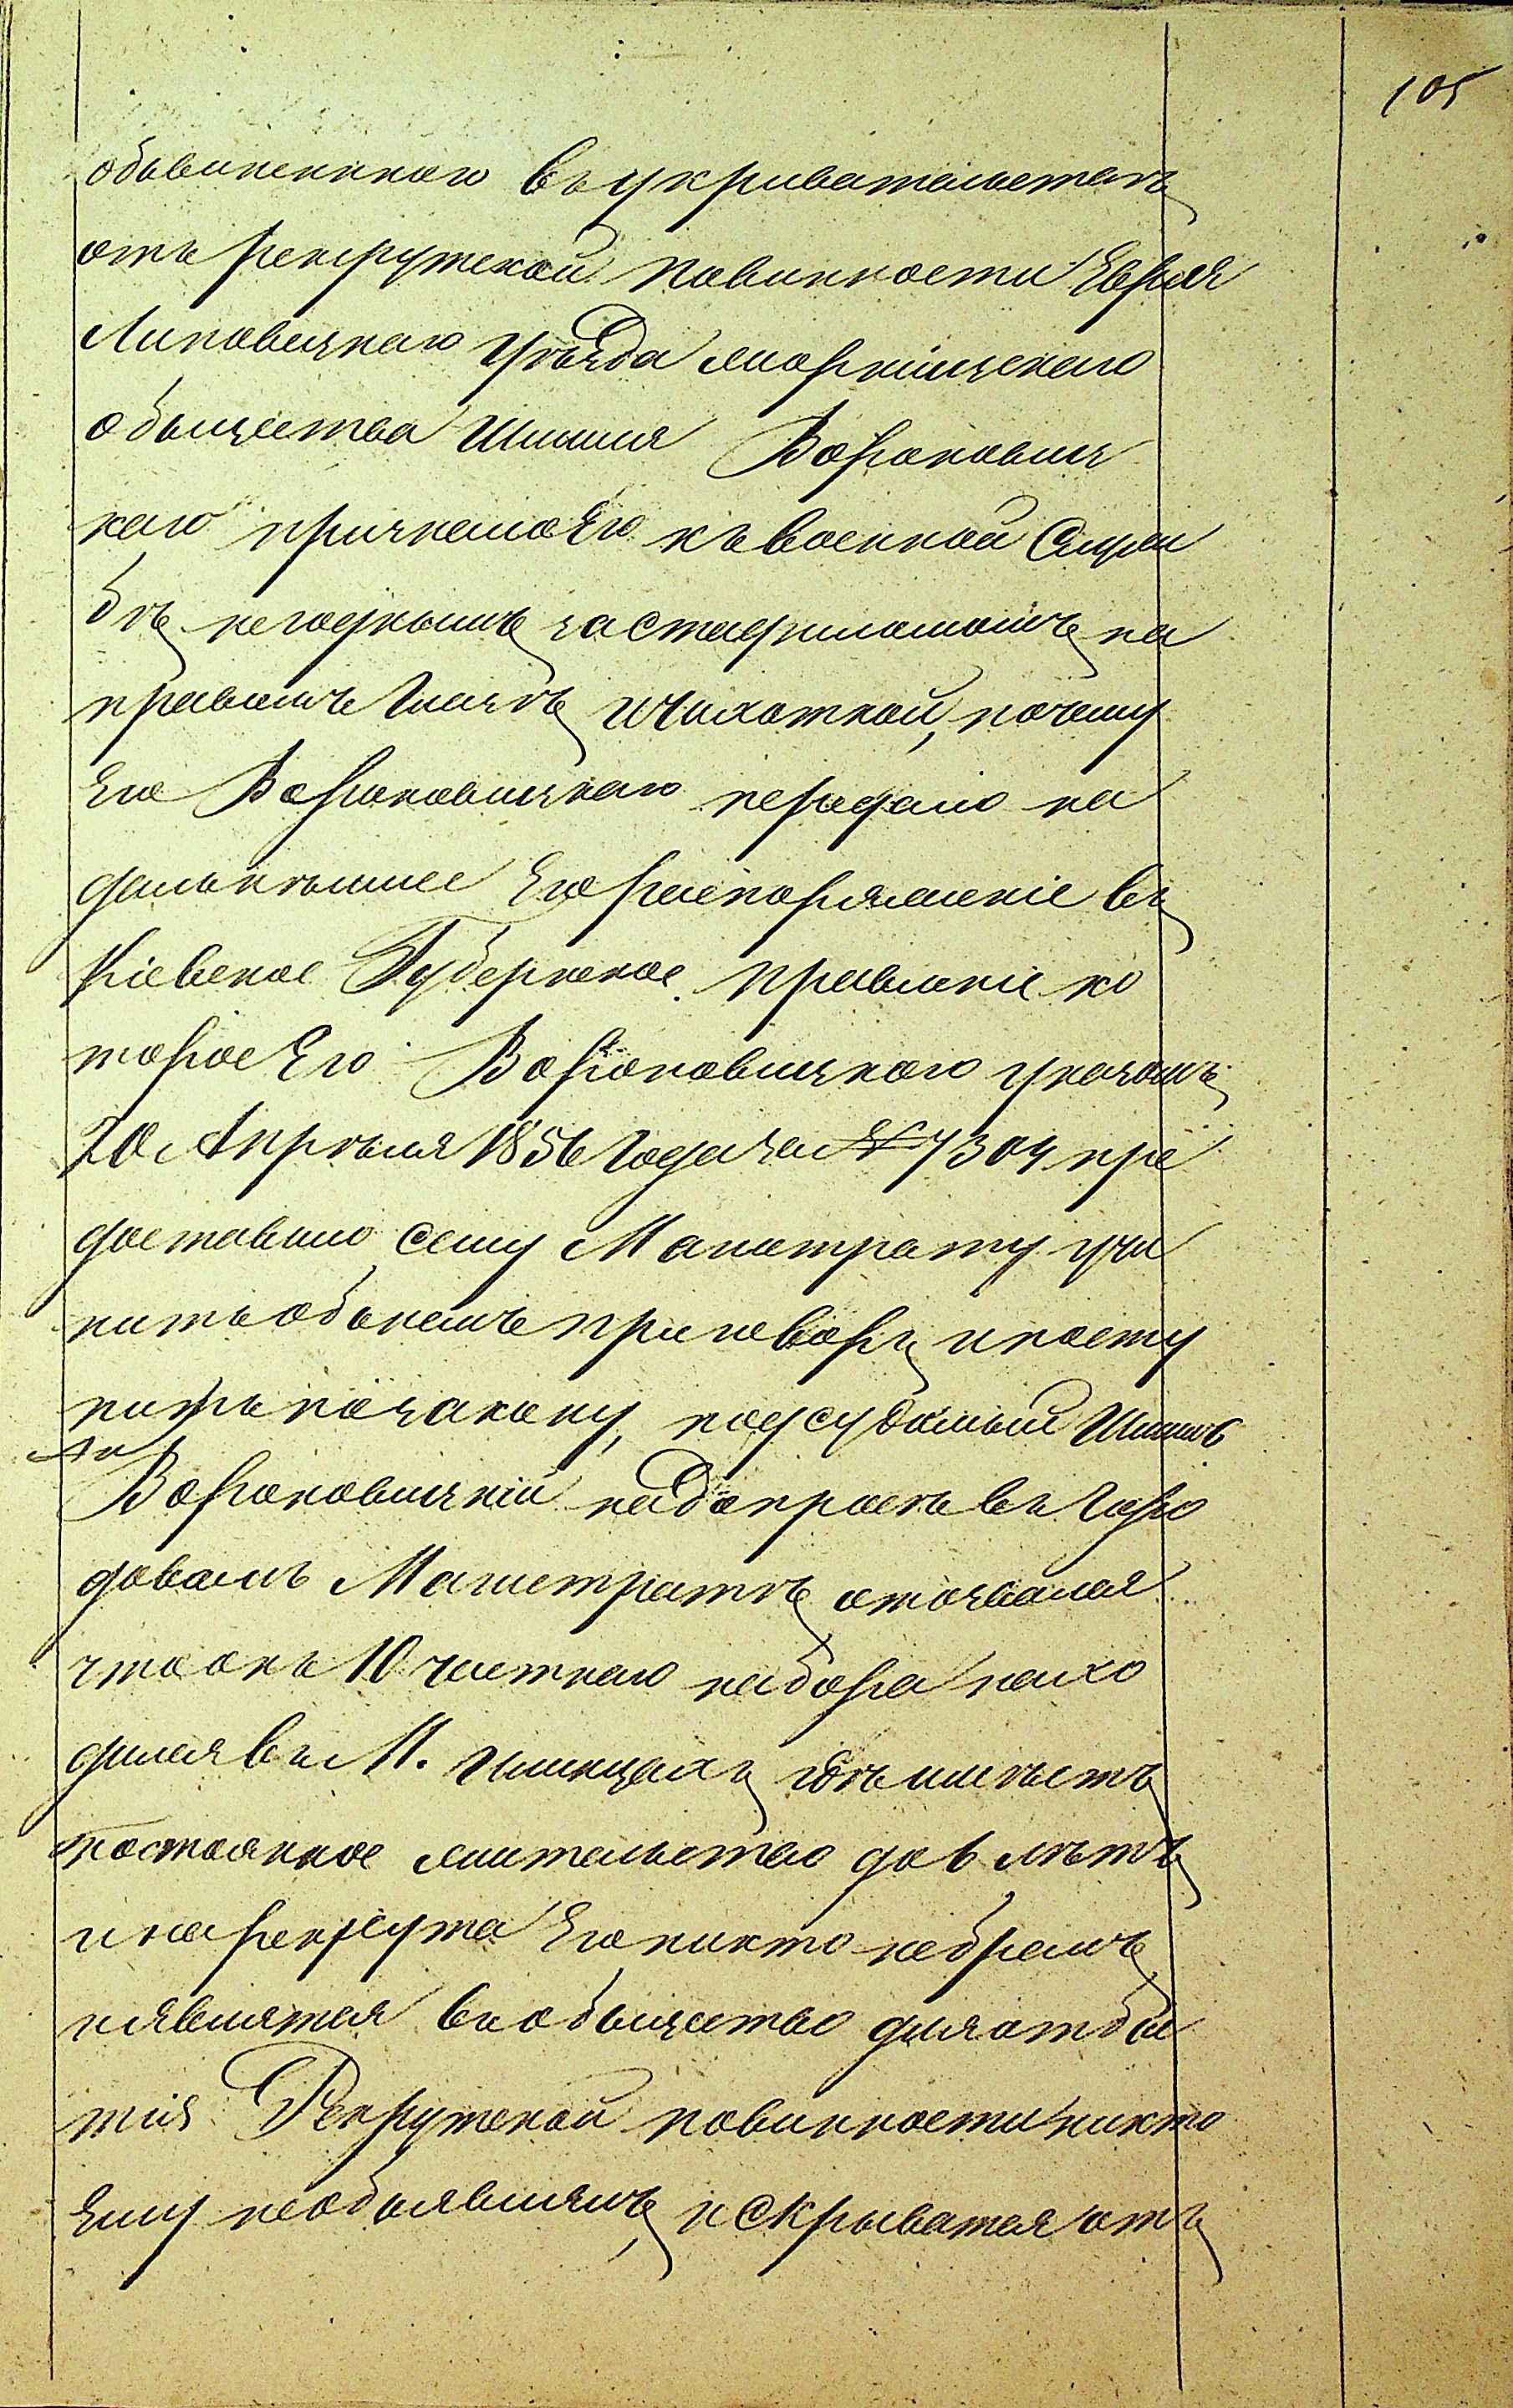 105
обвиненнаго въ укривательствѣ
отъ рекрутской повинности Еврея
Липовецкаго уѣзда
общества Шмиля Вороновиц
каго признало Его къ военной служ
бѣ негоднымъ за стафиломомъ на
правомъ глазѣ и чахоткой, почему
Его Вороновицкаго передано на
дальнѣйшее Его распоряженіе въ
Кіевское Губернское правленіе ко
торое Его Вороновицкаго указомъ
20 Апрѣля 1856 года за № 7304 пре
доставило сему Магистрату учи
нить объ немъ приговоръ и посту
пить по закону, подсудимый Шмиль
Вороновицкій на допросѣ въ Горо
довомъ Магистратѣ отозвался
что онъ 10 частнаго набора нахо
дился въ М. Ильинцахъ гдѣ имѣетъ
постоянное жительство до 6 лѣтъ
и на рекрута Его никто небралъ
и явиться въ общество для отбы
тія Рекрутской повинности никто
Ему необъявлялъ, и скрываться отъ